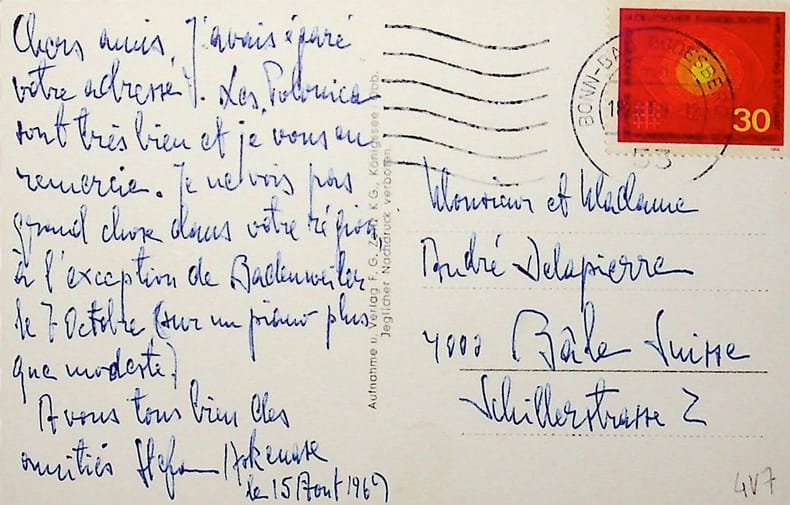 Chers amis, J'avais égaré
votre adresse. Les Polonica
sont très bien et je vous en
remercie. Je ne vois pas
grand chose dans votre région,
à l'exception de Badenweiler
le 7 Octobre (sur un piano plus
que modeste)
A vous tous bien des
amitiés Stefan Askenase
le 15 Aout 1969
Aufnahme u. Verlag F. G. Z K G., Königssee
Jeglicher Nachdruck verboten.
BONN-BAD GODESBERG
53
30
Monsieur et Madame
André Delapierre
4000 Bâle Suisse
Schillerstrasse 2
4V7